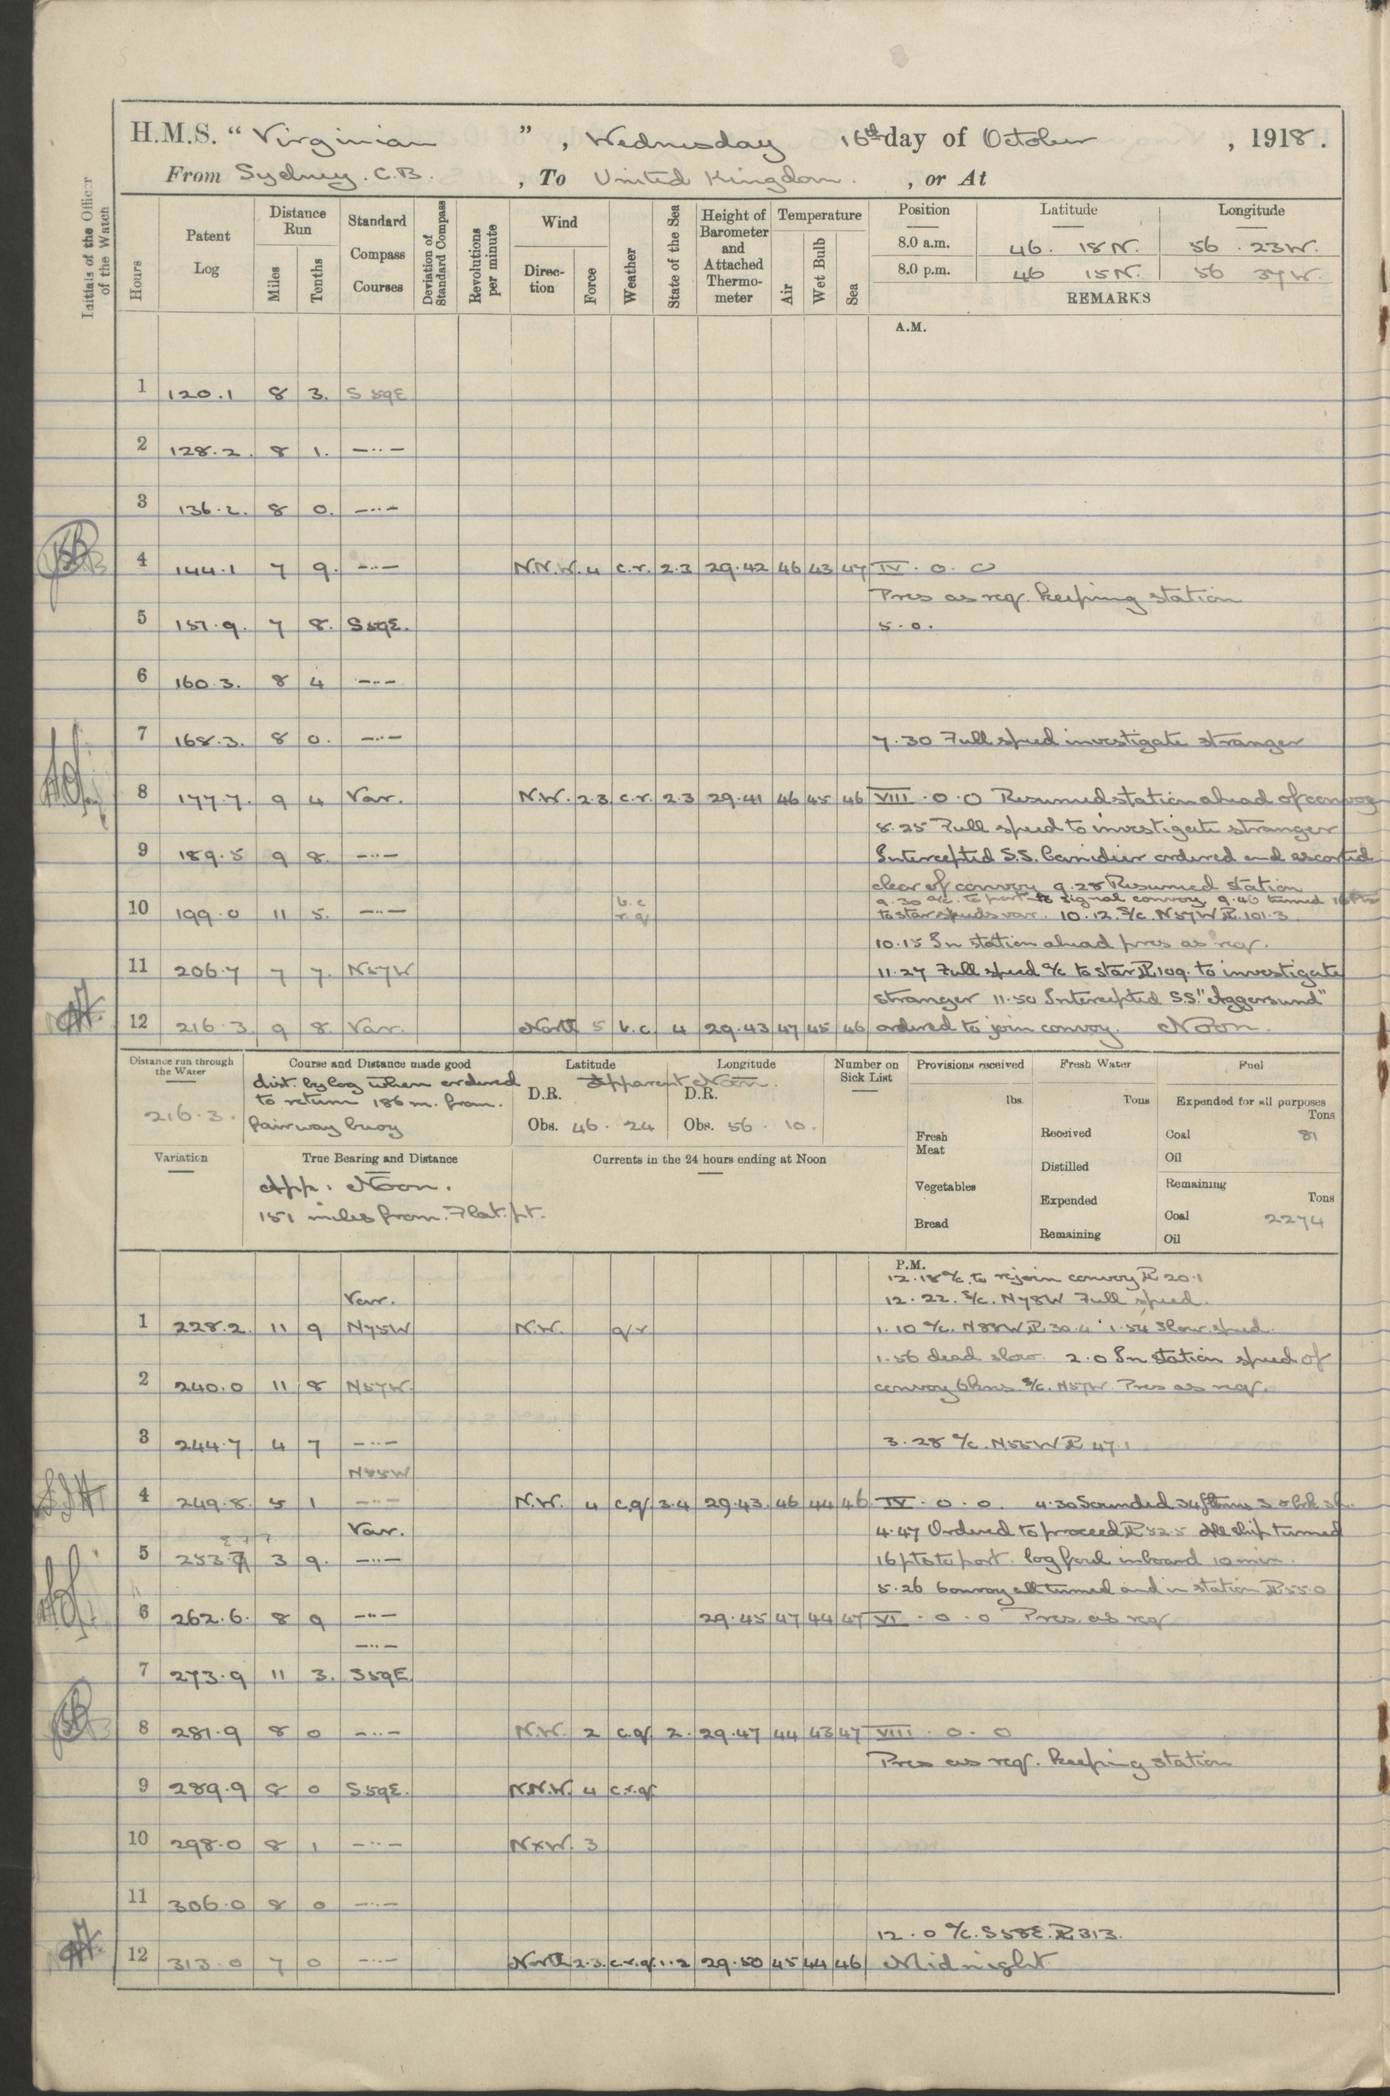 H.M.S. “ Virginian ” , Wednesday 16th day of October , 1918 .
From Sydney . C.B. , To United Kingdom . , or At
Initials of the Officer of the Watch
Hours
Patent Log
Distance Run
Miles
Tenths
Standard Compass Courses
Deviation of Standard Compass
Revolutions per minute
Wind
Direction
Force
Weather
State of the Sea
Height of Barometer and Attached Thermometer
Temperature
Air
Wet Bulb
Sea
Position Latitude Longitude
8.0 a.m. 46 . 18 N. 56 . 23 W.
8.0 p.m. 46 15 N. 56 37 W.
REMARKS
A.M.
1 120.1 8 3. S 59 E
2 128.2. 8 1. —··—
3 136.2. 8 0. —··—
4 144.1 7 9. —··— N.N.W. 4 c.r. 2.3 29.42 46 43 47 IV . 0 . 0
Pres as req. keeping station
5 151.9. 7 8. S59E. 5.0.
6 160.3. 8 4 —··—
7 168.3. 8 0. —··— 7.30 Full speed investigate stranger
8 177.7. 9 4 Var. N.W. 2.3 c.r. 2.3 29.41 46 45 46 VIII . 0 . 0 Resumed station ahead of convoy
8.25 Full speed to investigate stranger
9 189.5 9 8. —··— Intercepted S.S. ordered and escorted
clear of convoy 9.28 Resumed station
9.30 a/c. to port to signal convoy 9.40 turned 16 Pts
10 199.0 11 5. —··— b.c r.q to star speeds var. 10.12. S/c. N57W P.L 101.3
10.15 In station ahead pres as req.
11 206.7 7 7. N57W 11.27 Full speed a/c to star P.L 109. to investigate
stranger 11.50 Intercepted S.S. "Aggersund"
12 216.3. 9 8. Var. North 5 b.c 4 29.43 47 45 46 ordered to join convoy. Noon.
Distance run through the Water
216.3.
Course and Distance made good
dist. by log when ordered
to return 186 m. from.
fairway buoy
Latitude Longitude
Apparent Noon.
D.R. D.R.
Obs. 46 . 24 Obs. 56 . 10.
Number on Sick List
Provisions received
lbs.
Fresh Meat
Vegetables
Bread
Fresh Water
Tons
Received
Distilled
Expended
Remaining
Fuel
Expended for all purposes
Tons
Coal 81
Oil
Remaining
Tons
Coal 2274
Oil
Variation
True Bearing and Distance
App. Noon.
151 miles from. Flat. pt.
Currents in the 24 hours ending at Noon
P.M.
12.18 a/c. to rejoin convoy P.L 20.1
Var. 12.22. S/c. N78W Full speed.
1 228.2. 11 9 N75W N.W. q.r 1.10 a/c. N88W P.L 30.4 1.54 Slow speed.
1.56 dead slow. 2.0 In station speed of
2 240.0 11 8 N57W. convoy 6 kns. S/c. N57W. Pres as req.
3 244.7 4 7 —··— 3.28 a/c. N55W P.L 47.1
N55W
4 249.8. 5 1 —··— N.W. 4 c.q. 3.4 29.43. 46 44 46 IV . 0 . 0. 4.30 Sounded
Var. 4.47 Ordered to proceed P.L 52.5 All ship turned
5 253.7 3 9. —··— 16 pts to port. log foul inboard 10 min.
5.26 Convoy all turned and in station P.L 55.0
6 262.6. 8 9 —··— 29.45 47 44 47 VI . 0 . 0 Pres. as req
—··—
7 273.9 11 3. S59E
8 281.9 8 0 —··— N.W. 2 c.q. 2. 29.47 44 43 47 VIII . 0 . 0
Pres as req. keeping station
9 289.9 8 0 S59E. N.N.W. 4 c.r.q.
10 298.0 8 1 —··— NxW. 3
11 306.0 8 0 —··—
12.0 a/c. S58E. P.L 313.
12 313.0 7 0 —··— North 2.3. c.r.q. 1.2 29.50 45 44 46 Midnight